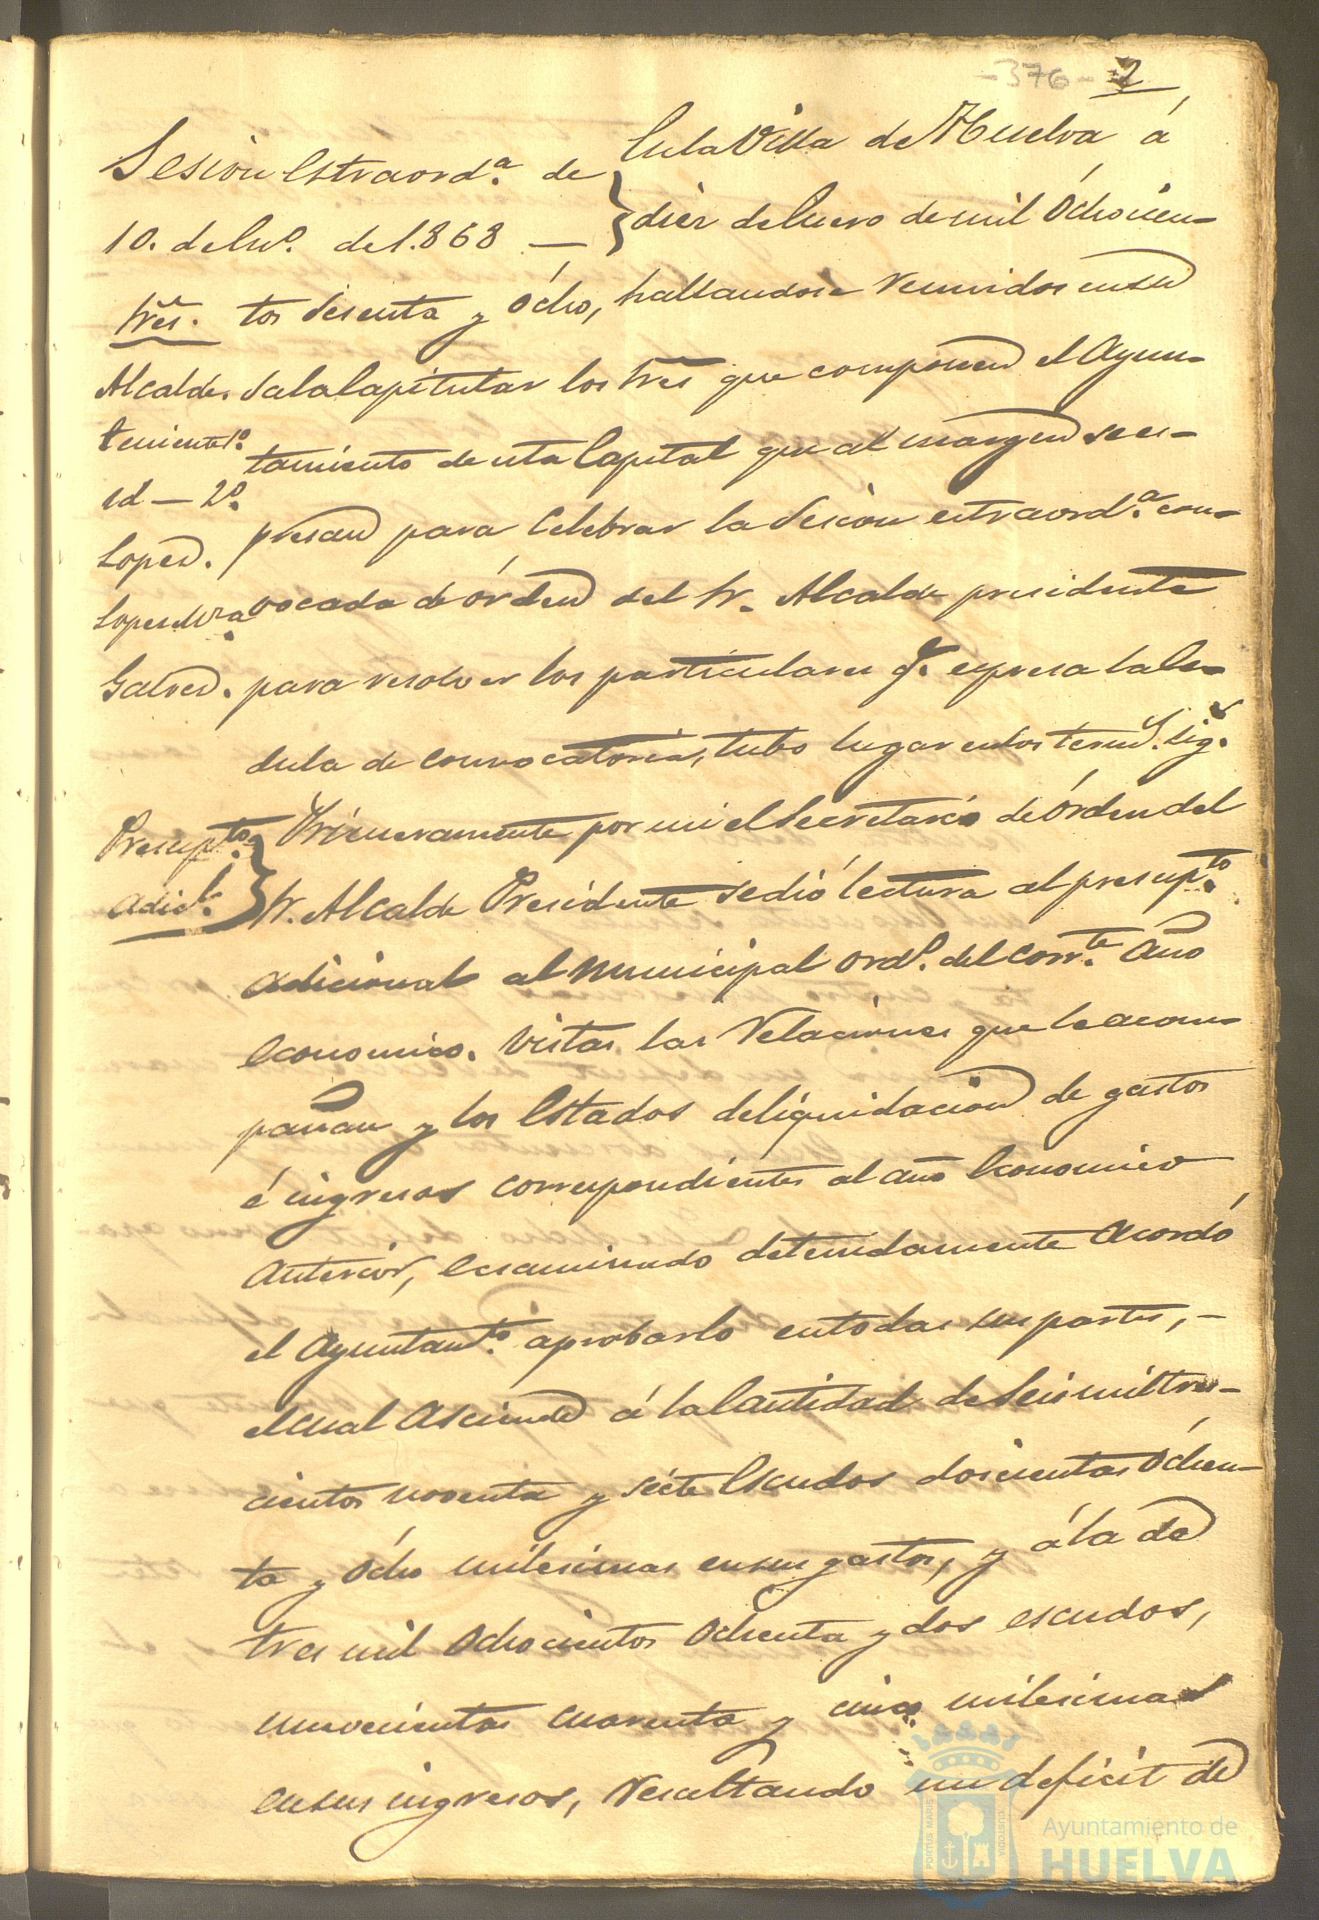 -376- 2
Sesion Estraord.ª de
10. de En.º de 1.868 —
En la Villa de Huelva á
diez de Enero de mil Ochocien-
Sres. tos sesenta y Ocho, hallandose reunidos en su
Alcalde. Sala Capitular los Sres que componen el Ayun-
teniente 1.º tamiento de esta Capital que al margen se es-
id — 2.º presan para Celebrar la Sesion estraord.ª con-
Lopez. vocada de órden del Sr. Alcalde presidente
Galvez. para resolver los particulares q.e espresa la Ce-
dula de convocatoria, tubo lugar en los term.s sig.s
Presup.to
adic.l
Primeramente por mi el Secretario de órden del
Sr. Alcalde Presidente se dió lectura al presup.to
adicional al Municipal ord.º del corr.te Año
Economico. Vistas las Relaciones que le acom-
pañan y los Estados de liquidacion de gastos
é ingresos correspondientes al año Economico
Anterior, Ecsaminado detenidamente Acordó
el Ayuntam.to aprobarlo en todas sus partes, -
el cual Asciende á la Cantidad de Seis mil tres-
cientos noventa y siete Escudos doscientas Ochen-
ta y Ocho milesimas en sus gastos, y á la de
tres mil Ochocientos Ochenta y dos escudos,
novecientas cuarenta y cinco milesimas
en sus ingresos, Resultando un deficit de
PORTUS MARIS CUSTODIA
Ayuntamiento de
HUELVA